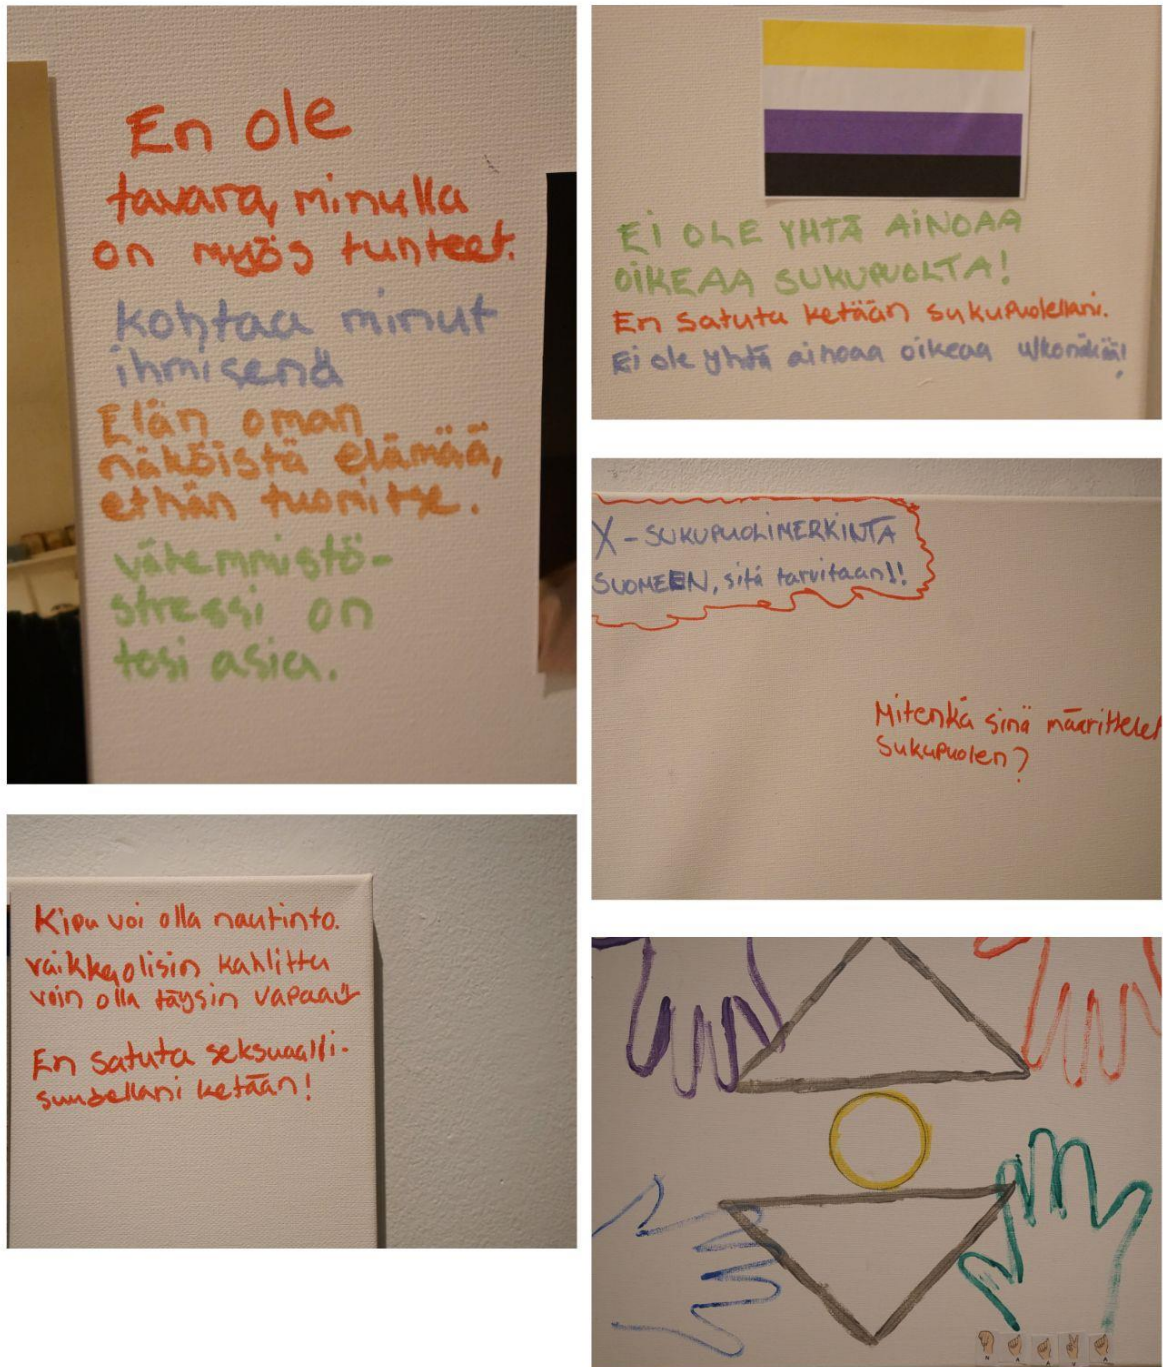 En ole
tavara, minulla
on myös tunteet.
kohtaa minut
ihmisenä
Elän oman
näköistä elämää,
ethän tuomitse.
vähemmistö-
stressi on
tosi asia.
Kipu voi olla nautinto.
vaikka olisin kahlittu
voin olla täysin vapaa
En satuta seksuaali-
suudellani ketään!
Ei OLE YHTÄ AiNOAA
OiKEAA SUKUPUOLTA!
En satuta ketään sukupuolellani.
Ei ole yhtä ainoaa oikeaa ulkonäköä!
X-SUKUPUOLiMERKiNTÄ
SUOMEEN, sitä tarvitaan!!
Mitenkä sinä määrittelet
sukupuolen?